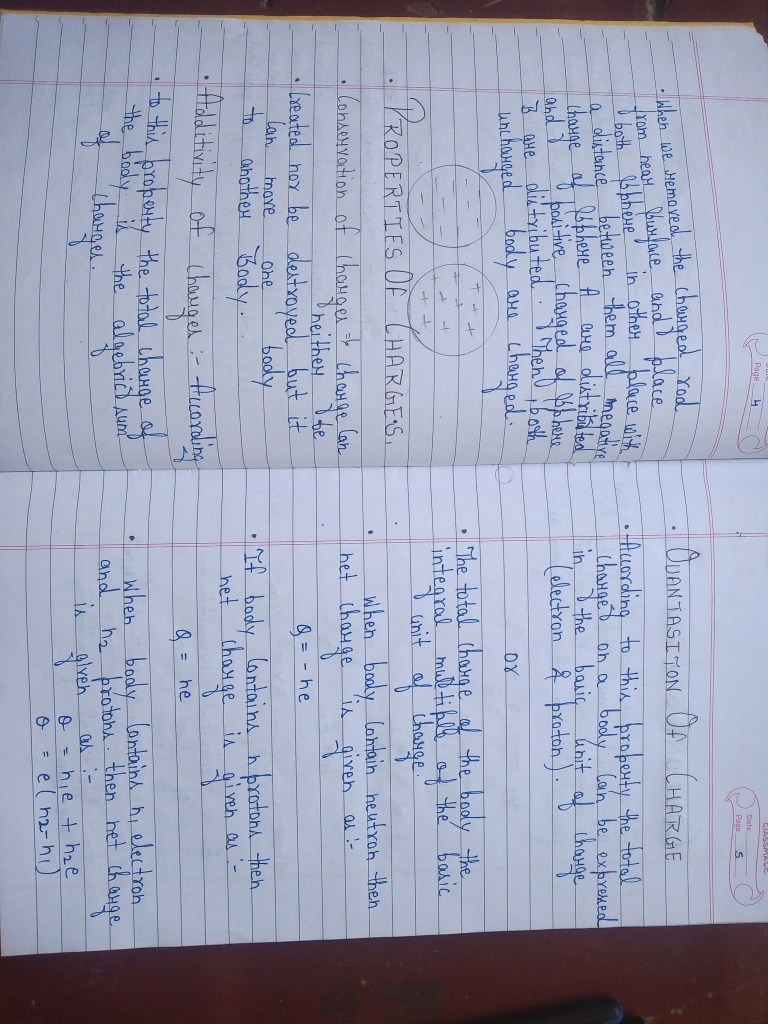 Date
Page 4
• When we removed the charged rod
from near surface and place
both sphere in other place with
a distance between them all negative
charge of sphere A are distributed
and positive charged of sphere
B are distributed. Then both
uncharged body are charged.
- - -
- - -
- - -
+ + +
+ + +
+ + +
• PROPERTIES OF CHARGES.
• Conservation of charges ⇒ charge can
neither be
created nor be destroyed but it
can move one body
to another Body.
• Additivity of charges :- According
• to this property the total charge of
the body is the algebric sum
of charges.
CLASSMATE
Date
Page 5
• QUANTASITON OF CHARGE
• According to this property the total
charge on a body can be expressed
in the basic unit of charge
(electron & proton).
or
• The total charge of the body the
integral multiple of the basic
unit of charge.
• When body contain neutron then
net charge is given as :-
Q = - ne
• If body contains n protons then
net charge is given as :-
Q = ne
• When body contains n1 electron
and n2 protons. then net charge
is given as :-
Q = n1e + n2e
Q = e (n2-n1)